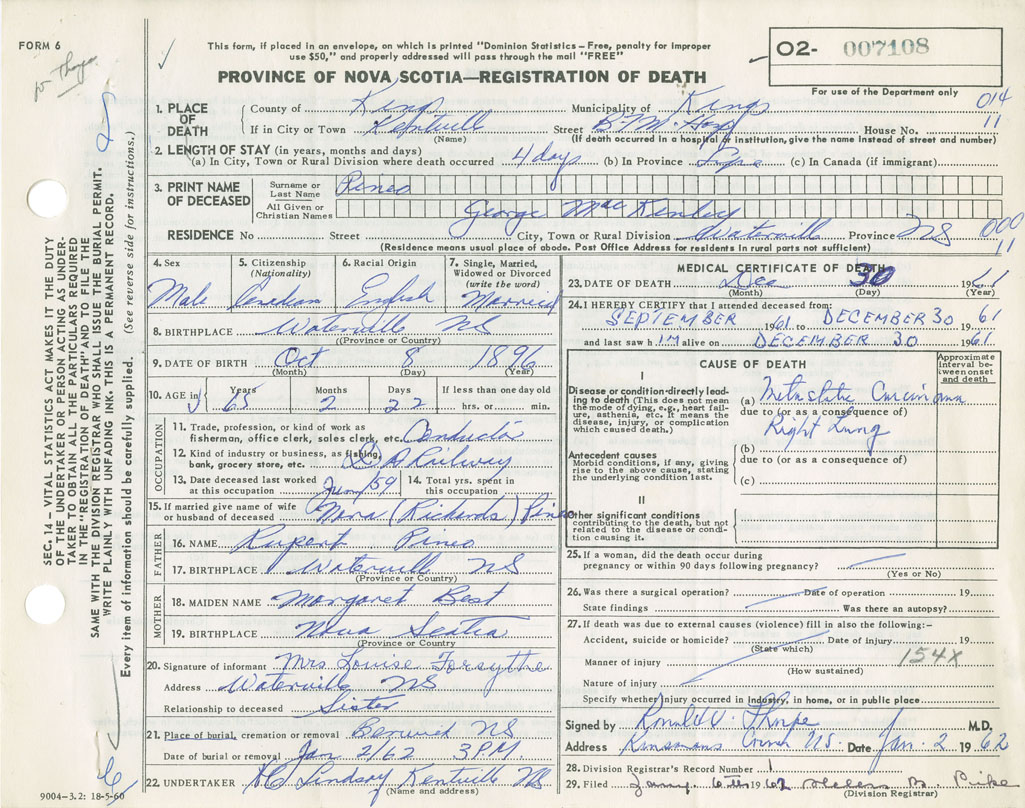 FORM 6
for Thorpe
This form, if placed in an envelope, on which is printed "Dominion Statistics – Free, penalty for improper
use $50," and properly addressed will pass through the mail "FREE"
PROVINCE OF NOVA SCOTIA—REGISTRATION OF DEATH
O2- 007108
For use of the Department only
014
11
1. PLACE OF DEATH
County of Kings Municipality of Kings
If in City or Town Kentville Street B.M. Hosp House No.
(Name) (If death occurred in a hospital or institution, give the name instead of street and number)
2. LENGTH OF STAY (in years, months and days)
(a) In City, Town or Rural Division where death occurred 4 days (b) In Province Life (c) In Canada (if immigrant)
3. PRINT NAME OF DECEASED
Surname or Last Name Pineo
All Given or Christian Names George MacKinley
RESIDENCE No Street City, Town or Rural Division Waterville Province NS
000
11
(Residence means usual place of abode. Post Office Address for residents in rural parts not sufficient)
4. Sex Male
5. Citizenship (Nationality) Canadian
6. Racial Origin English
7. Single, Married, Widowed or Divorced (write the word) Married
8. BIRTHPLACE Waterville NS
(Province or Country)
9. DATE OF BIRTH Oct 8 1896
(Month) (Day) (Year)
10. AGE in Years 65 Months 2 Days 22 If less than one day old hrs. or min.
OCCUPATION
11. Trade, profession, or kind of work as
fisherman, office clerk, sales clerk, etc. Conductor
12. Kind of industry or business, as fishing,
bank, grocery store, etc. D A Railway
13. Date deceased last worked at this occupation /59
14. Total yrs. spent in this occupation
15. If married give name of wife
or husband of deceased Nora (Richards) Pineo
FATHER
16. NAME Rupert Pineo
17. BIRTHPLACE Waterville NS
(Province or Country)
MOTHER
18. MAIDEN NAME Margaret Best
19. BIRTHPLACE Nova Scotia
(Province or Country)
20. Signature of informant Mrs Louise Forsythe
Address Waterville NS
Relationship to deceased Sister
21. Place of burial, cremation or removal Berwick NS
Date of burial or removal Jan 2/62 3 PM
22. UNDERTAKER Lindsay Kentville NS
(Name and address)
MEDICAL CERTIFICATE OF DEATH
23. DATE OF DEATH Dec 30 1961
(Month) (Day) (Year)
24. I HEREBY CERTIFY that I attended deceased from:
SEPTEMBER 1961 to DECEMBER 30 1961
and last saw him alive on DECEMBER 30 1961
CAUSE OF DEATH
Approximate interval between onset and death
I
Disease or condition directly leading to death (This does not mean the mode of dying, e.g., heart failure, asthenia, etc. It means the disease, injury, or complication which caused death.)
(a) Metastatic Carcinoma
due to (or as a consequence of)
Right Lung
Antecedent causes
Morbid conditions, if any, giving rise to the above cause, stating the underlying condition last.
(b)
due to (or as a consequence of)
(c)
II
Other significant conditions
contributing to the death, but not related to the disease or condition causing it.
25. If a woman, did the death occur during
pregnancy or within 90 days following pregnancy?
(Yes or No)
26. Was there a surgical operation? Date of operation 19
State findings Was there an autopsy?
27. If death was due to external causes (violence) fill in also the following:-
Accident, suicide or homicide? Date of injury 19
(State which)
154X
Manner of injury
(How sustained)
Nature of injury
Specify whether injury occurred in industry, in home, or in public place
Signed by Ronald V. Thorpe M.D.
Address Kinsmans Corner NS. Date Jan. 2 1962
28. Division Registrar's Record Number 1
29. Filed Jany 6th 1962 Helen B. Pike
(Division Registrar)
SEC. 14 – VITAL STATISTICS ACT MAKES IT THE DUTY
OF THE UNDERTAKER OR PERSON ACTING AS UNDER-
TAKER TO OBTAIN ALL THE PARTICULARS REQUIRED
IN THE "REGISTRATION OF DEATH" AND TO FILE THE
SAME WITH THE DIVISION REGISTRAR WHO SHALL ISSUE THE BURIAL PERMIT.
WRITE PLAINLY WITH UNFADING INK. THIS IS A PERMANENT RECORD.
Every item of information should be carefully supplied. (See reverse side for instructions.)
9004–3.2: 18-5-60